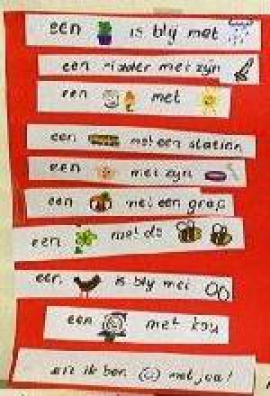 een is bly met
een ridder met zyn
een met
een met een station
een met zyn
een met een grap
een met de
een is bly met
een met kou
en ik ben met jou!